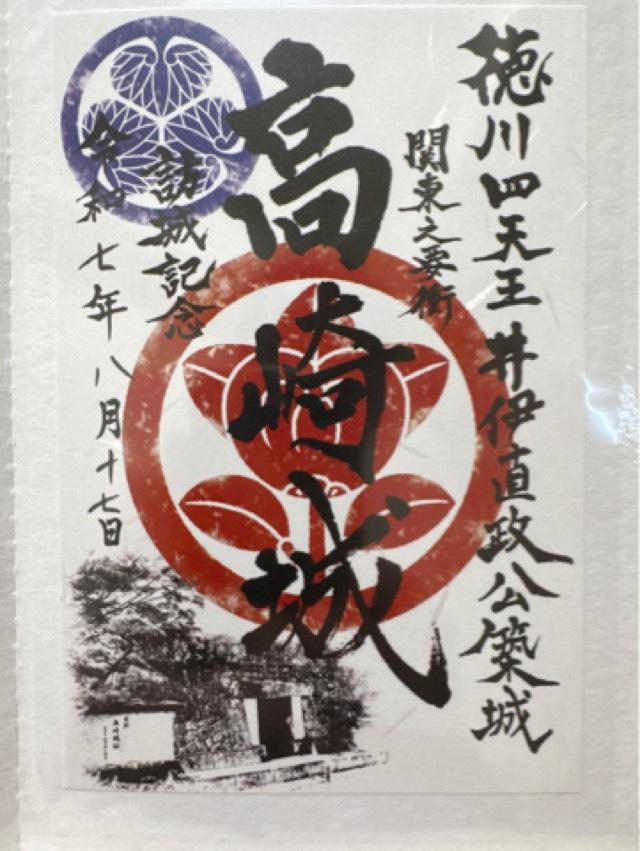 徳川四天王 井伊直政公築城
関東之要衝
高崎城
訪城記念
令和七年八月十七日